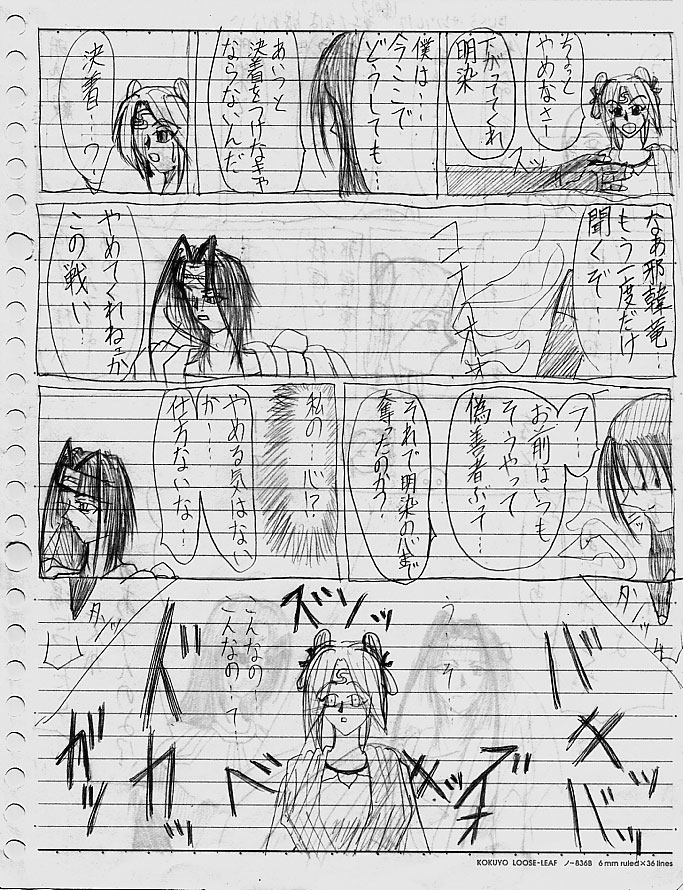 ちょっと
やめなさー
下がっててくれ
明染
ズッ
僕は…
今ここで
どうしても…
あいつと
決着をつけなきゃ
ならないんだ
決着……ワ…
なあ邪韓竜…
もう一度だけ
聞くぞ…
コオオオ
やめてくれねェか
この戦い…
フ…
お前はいつも
そうやって
偽善者ぶって…
それで明染の心まで
奪ったのか？
私の…心!?
やめる気はない
か…
仕方ないな…
タンッ
タンッ
ズバッ
う…そ…
こんなの…
こんなの…って…
KOKUYO LOOSE-LEAF ノ-836B 6mm ruled×36 lines